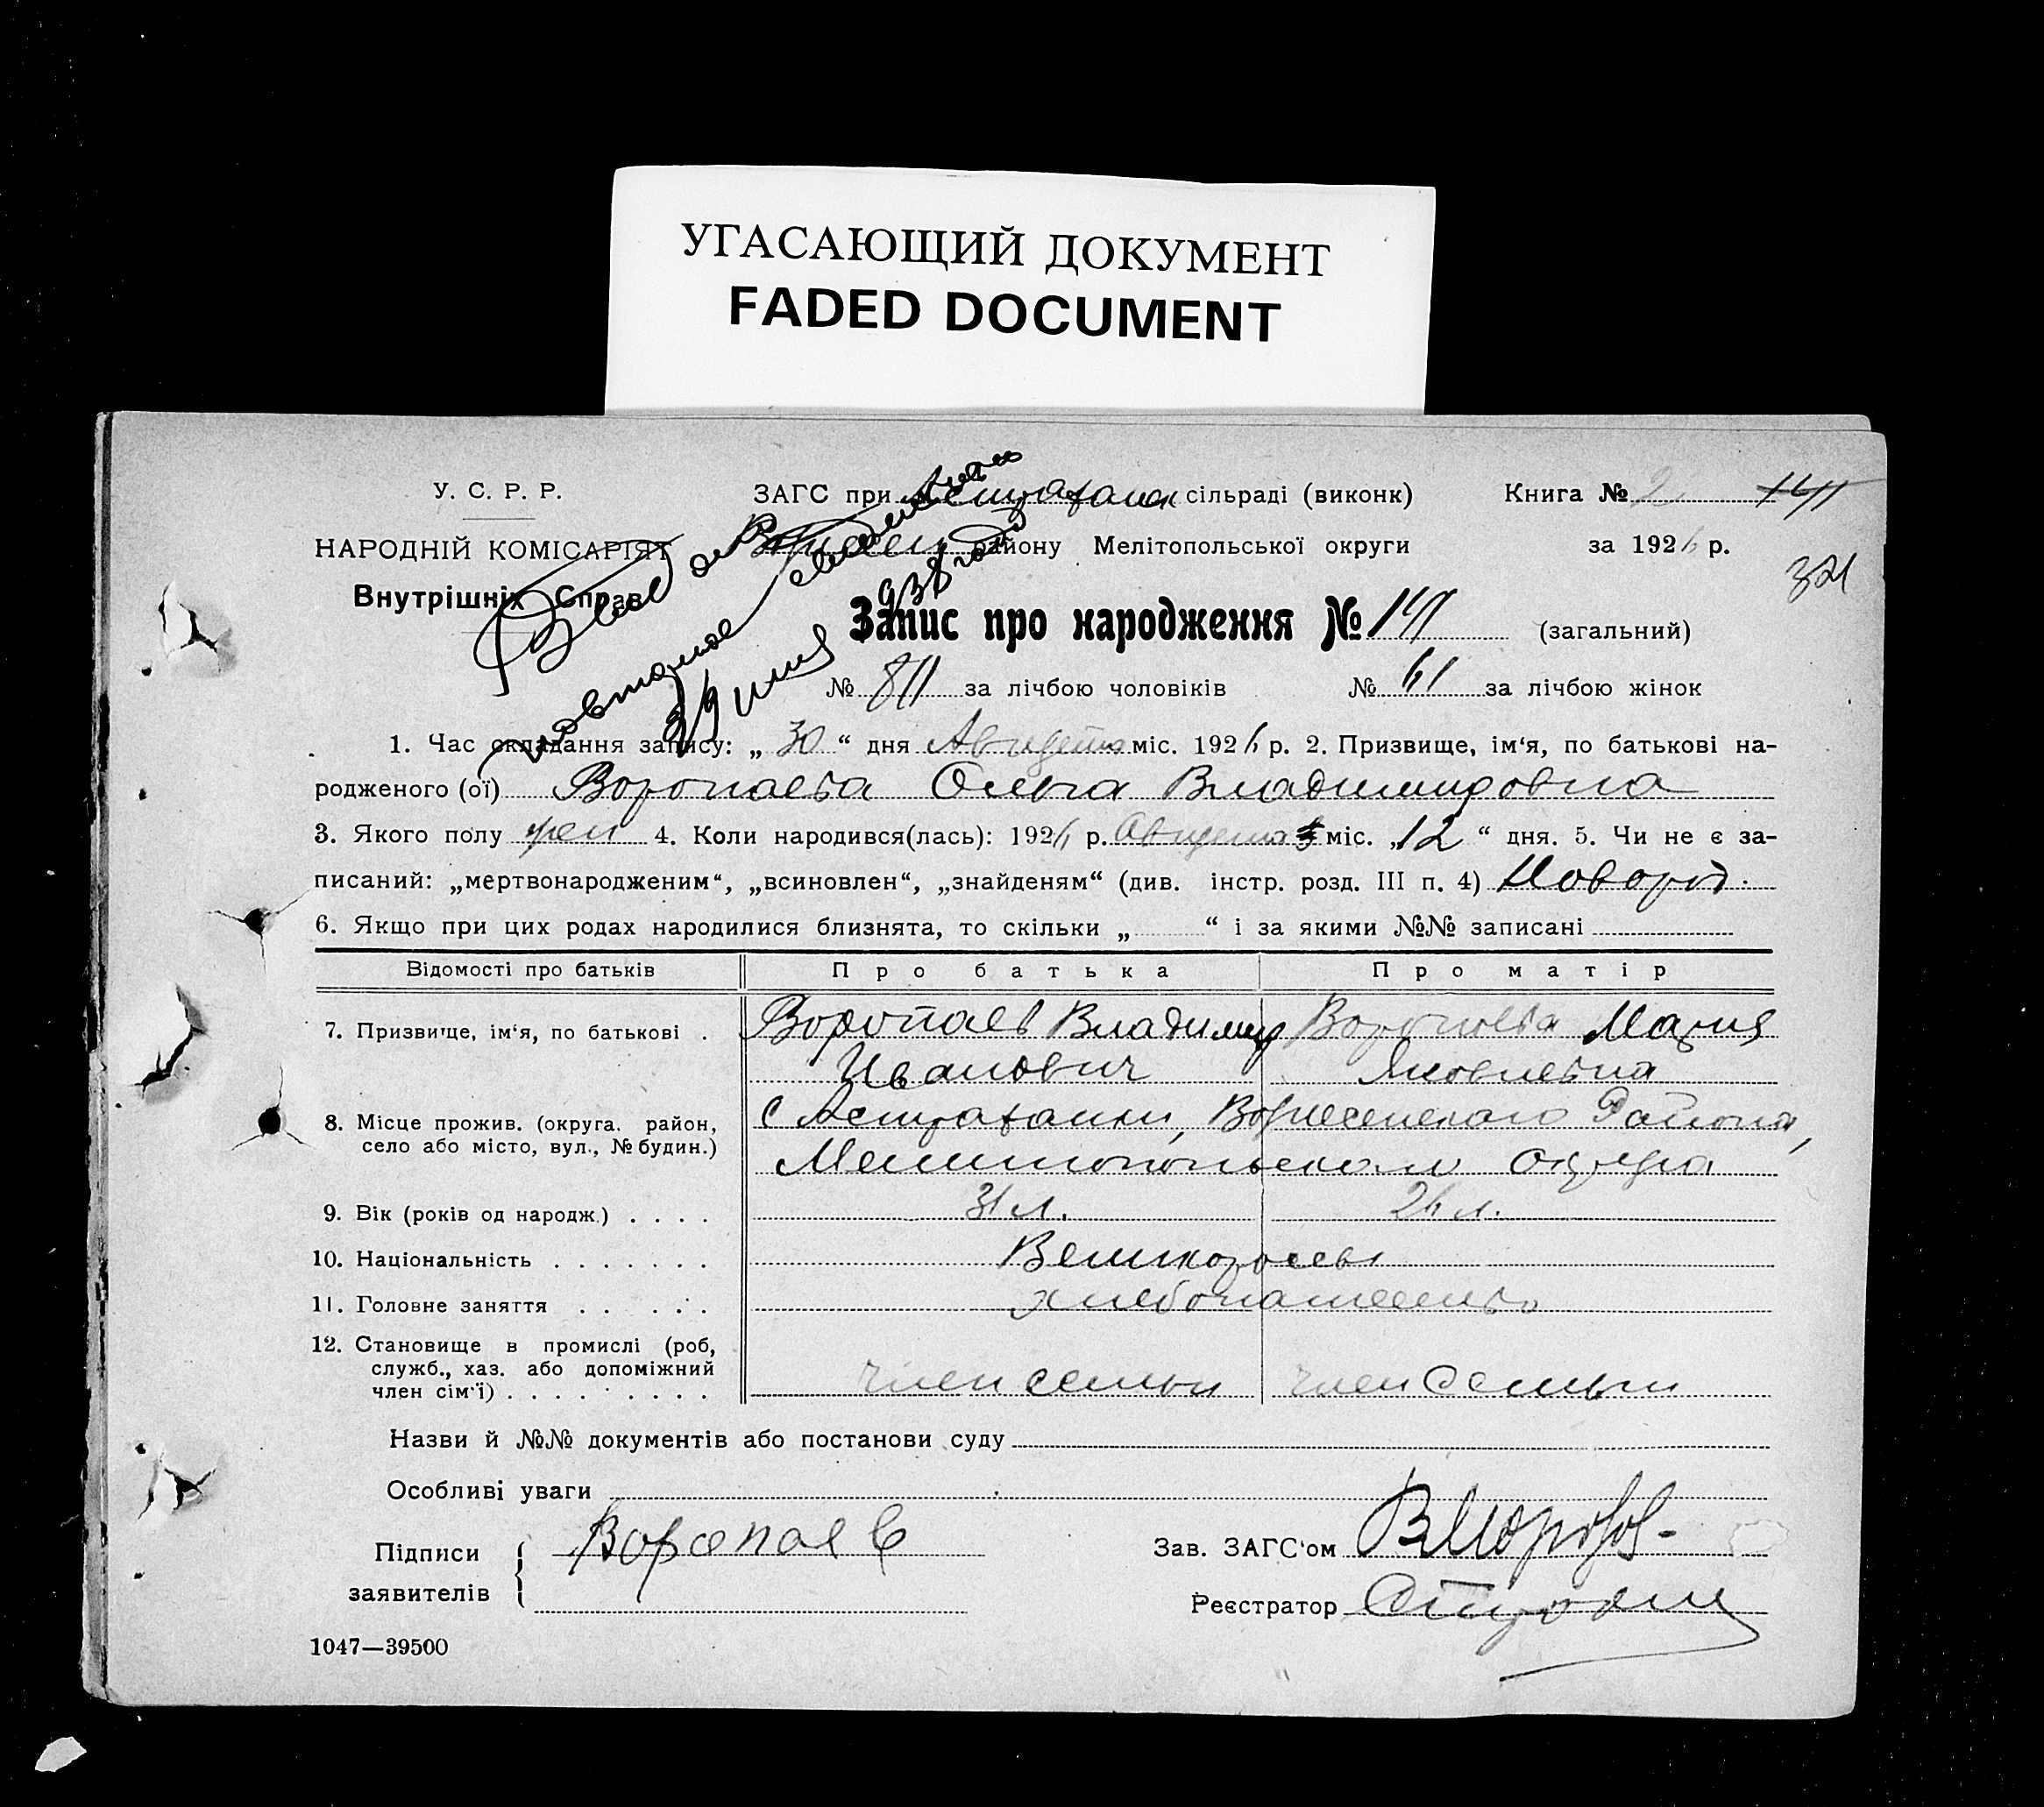 УГАСАЮЩИЙ ДОКУМЕНТ
FADED DOCUMENT
У. С. Р. Р.
НАРОДНІЙ КОМІСАРІЯТ
Внутрішніх Справ
ЗАГС при Астрахана сільраді (виконк)
району Мелітопольської округи
Книга № 2
за 1926 р.
повторное свидетельство
938 года
Запис про народження № (загальний)
№ за лічбою чоловіків № 61 за лічбою жінок
1. Час складання запису: „ 30 “ дня Августа міс. 1926 р. 2. Призвище, ім‘я, по батькові на-
родженого (ої) Воропаева Ольга Владимировна
3. Якого полу жен 4. Коли народився(лась): 1926 р. Августа міс. „12 “ дня. 5. Чи не є за-
писаний: „мертвонародженим“, „всиновлен“, „знайденям“ (див. інстр. розд. III п. 4) Новорож.
6. Якщо при цих родах народилися близнята, то скільки „ “ і за якими №№ записані
Відомості про батьків Про батька Про матір
7. Призвище, ім‘я, по батькові . Воропаев Владимир Воропаева Мария
Иванович Яковлевна
8. Місце прожив. (округа. район, село або місто, вул., № будин.) с Астраханки, Вознесенского Района,
Мелитопольского округа
9. Вік (років од народж.) . . . . 31 л. 26 л.
10. Національність . . . . . . . Великороссы
11. Головне заняття . . . . . хлебопашество
12. Становище в промислі (роб,
служб., хаз. або допоміжний
член сім‘ї) . . . . . . . . . член семьи член Семьи
Назви й №№ документів або постанови суду
Особливі уваги
Підписи заявителів { Воропаев
Зав. ЗАГС‘ом В Морозов
Реєстратор
1047—39500